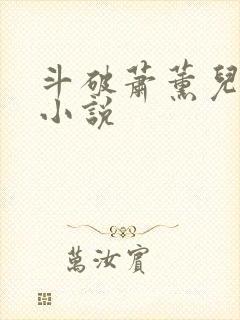 斗破萧薰兒
小說
萬汝賓